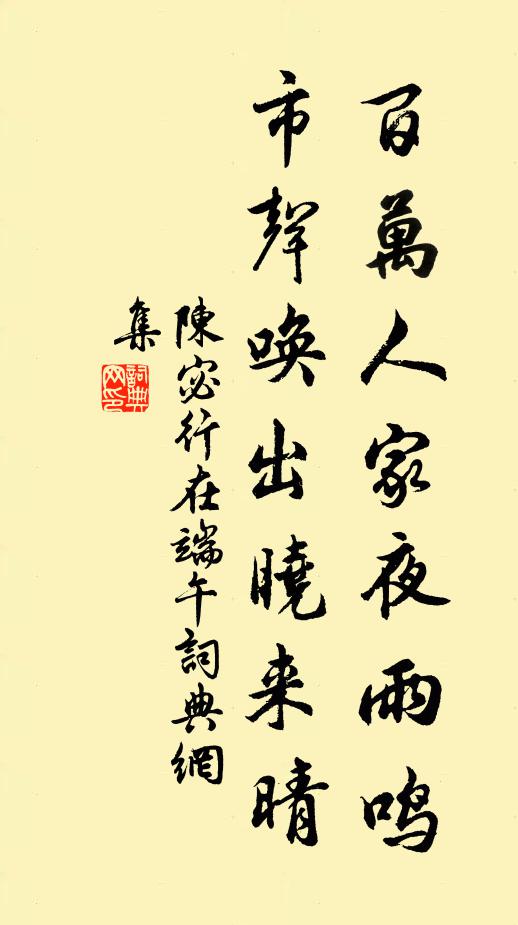 百萬人家夜雨鸣
市聲唤出曉来晴
陳宓行在端午詞典網
集
詞典网印